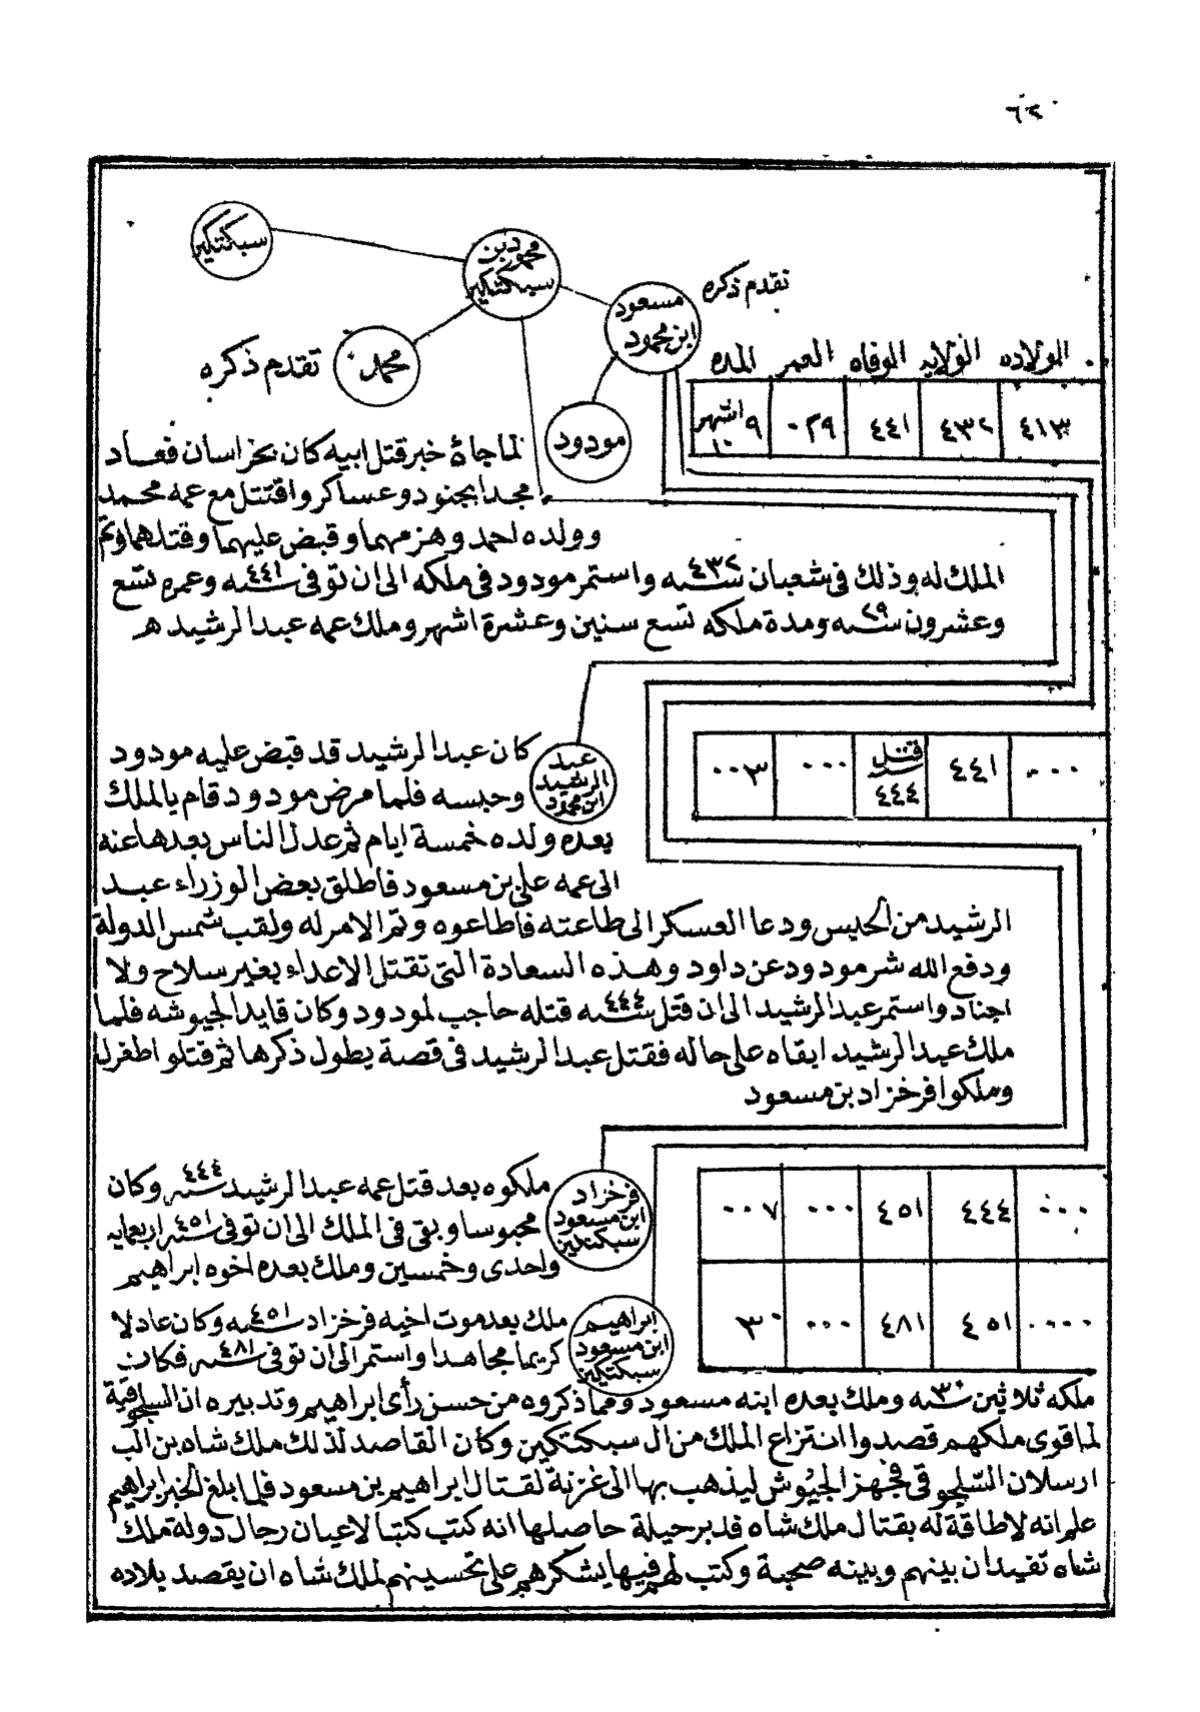 ٦٢٠
سبكتكين
محمود بن
سبكتكين
مسعود
ابن محمود
تقدم ذكره
محمد
تقدم ذكره
مودود
الولاده الولايه الوفاه العمر المده
٤١٣ ٤٣٢ ٤٤١ ٠٢٩ ٩ اشهر ١٠
لما جاءه خبر قتل ابيه كان بخراسان فعاد
مجدا بجنود وعساكر واقتتل مع عمه محمد
وولده احمد وهزمهما وقبض عليهما وقتلهما وتم
الملك له وذلك فى شعبان سنه ٤٣٢ واستمر مودود فى ملكه الى ان توفى سنه ٤٤١ وعمره تسع
وعشرون سنه ٢٩ ومدة ملكه تسع سنين وعشرة اشهر وملك عمه عبد الرشيد هـ
عبد
الرشيد
ابن محمود
٠٠٠ ٤٤١ قتل سنه ٤٤٤ ٠٠٠ ٠٠٣
كان عبد الرشيد قد قبض عليه مودود
وحبسه فلما مرض مودود قام بالملك
بعده ولده خمسة ايام ثم عدل الناس بعدها عنه
الى عمه على بن مسعود فاطلق بعض الوزراء عبد
الرشيد من الحبس ودعا العسكر الى طاعته فاطاعوه وتم الامر له ولقب شمس الدولة
ودفع الله شر مودود عن داود وهذه السعادة التى تقتل الاعداء بغير سلاح ولا
اجناد واستمر عبد الرشيد الى ان قتل سنه ٤٤٤ قتله حاجب لمودود وكان قايد الجيوشه فلما
ملك عبد الرشيد ابقاه على حاله فقتل عبد الرشيد فى قصة يطول ذكرها ثم قتلو اطغرل
وملكوا فرخزاد بن مسعود
فرخزاد
ابن مسعود
سبكتكين
٠٠٠ ٤٤٤ ٤٥١ ٠٠٠ ٠٠٧
ملكوه بعد قتل عمه عبد الرشيد سنه ٤٤٤ وكان
محبوسا وبقى فى الملك الى ان توفى سنه ٤٥١ اربعمايه
واحدى وخمسين وملك بعده اخوه ابراهيم
ابراهيم
ابن مسعود
سبكتكين
٠٠٠٠ ٤٥١ ٤٨١ ٠٠٠ ٣٠
ملك بعد موت اخيه فرخزاد سنه ٤٥١ وكان عادلا
كريما مجاهدا واستمر الى ان توفى سنه ٤٨١ فكان
ملكه ثلاثين سنه ٣٠ وملك بعده ابنه مسعود ومما ذكروه من حسن رأى ابراهيم وتدبيره ان السلجوقية
لما قوى ملكهم قصدوا انتزاع الملك من ال سبكتكين وكان القاصد لذلك ملك شاه بن الب
ارسلان السلجوقى فجهز الجيوش ليذهب بها الى غزنة لقتال ابراهيم بن مسعود فلما بلغ الخبر ابراهيم
علم انه لا طاقة له بقتال ملك شاه فدبر حيلة حاصلها انه كتب كتبا لاعيان رجال دولة ملك
شاه تفيد ان بينهم وبينه صحبة وكتب لهم فيها يشكرهم على تحسينهم لملك شاه ان يقصد بلاده